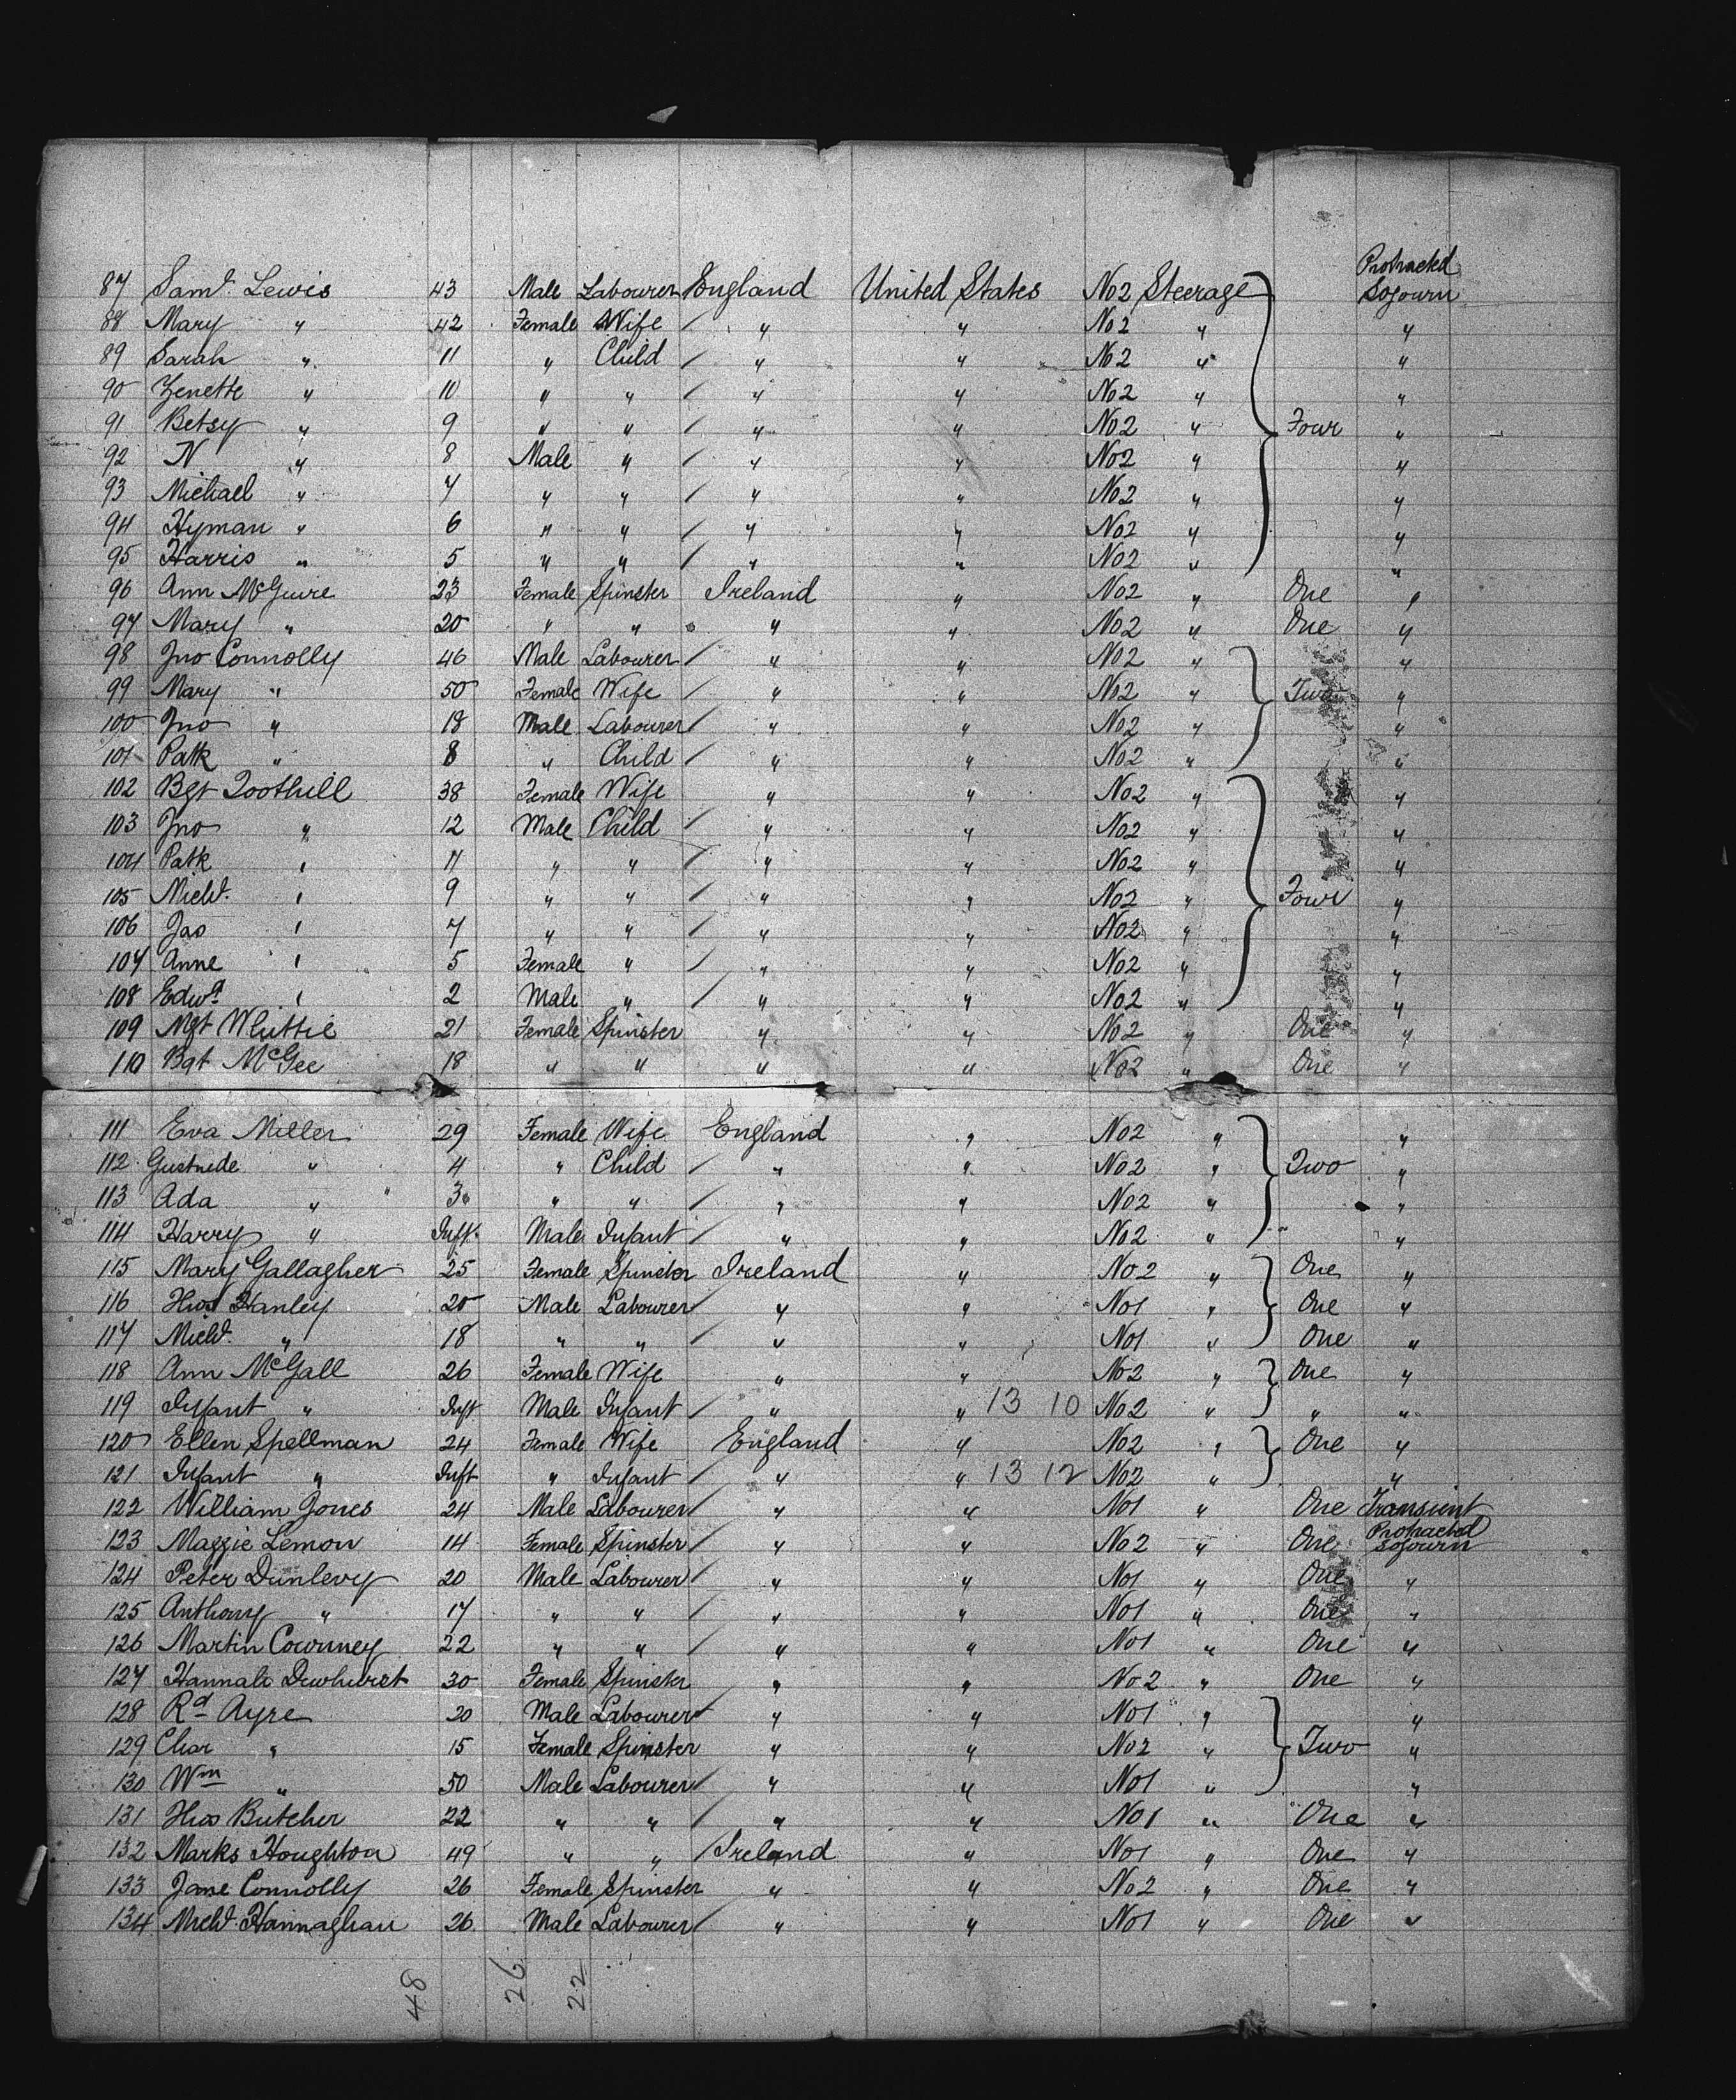 Protracted
87 Saml. Lewis 43 Male Labourer England United States No2 Steerage Sojourn
88 Mary " 42 Female Wife / " " No2 " "
89 Sarah " 11 " Child / " " No2 " "
90 Zenette " 10 " " / " " No2 " "
91 Betsy " 9 " " / " " No2 " Four "
92 N " 8 Male " / " " No2 " "
93 Michael " 7 " " / " " No2 " "
94 Hyman " 6 " " / " " No2 " "
95 Harris " 5 " " / " " No2 " "
96 Ann McGuire 23 Female Spinster Ireland " No2 " One "
97 Mary " 20 " " " " No2 " One "
98 Jno Connolly 46 Male Labourer / " " No2 " "
99 Mary " 50 Female Wife / " " No2 " Two "
100 Jno " 18 Male Labourer / " " No2 " "
101 Patk " 8 " Child / " " No2 " "
102 Bgt Toothill 38 Female Wife " " No2 " "
103 Jno " 12 Male Child / " " No2 " "
104 Patk " 11 " " / " " No2 " "
105 Michl. " 9 " " / " " No2 " Four "
106 Jas " 7 " " / " " No2 " "
107 Anne " 5 Female " / " " No2 " "
108 Edwd " 2 Male " / " " No2 " "
109 Mgt Whittie 21 Female Spinster " " No2 " One "
110 Bgt McGee 18 " " " " No2 " One "
111 Eva Miller 29 Female Wife England " No2 " "
112 Gustrude " 4 " Child / " " No2 " Two "
113 Ada " 3 " " / " " No2 " "
114 Harry " Inft. Male Infant / " " No2 " "
115 Mary Gallagher 25 Female Spinster Ireland " No2 " One "
116 Thos Hanley 20 Male Labourer / " " No1 " One "
117 Michl. " 18 " " / " " No1 " One "
118 Ann McGall 26 Female Wife " " No2 " One "
119 Infant " Inft Male Infant / " " 13 10 No2 " " "
120 Ellen Spellman 24 Female Wife England " No2 " One "
121 Infant " Inft " Infant / " " 13 12 No2 " "
122 William Jones 24 Male Labourer / " " No1 " One Transient
123 Maggie Lemon 14 Female Spinster / " " No2 " One Protracted Sojourn
124 Peter Dunlevy 20 Male Labourer / " " No1 " One "
125 Anthony " 17 " " / " " No1 " One "
126 Martin Cownney 22 " " / " " No1 " One "
127 Hannah Dewhurst 30 Female Spinster " " No2 " One "
128 Rd Ayre 20 Male Labourer / " " No1 " "
129 Char " 15 Female Spinster " " No2 " Two "
130 Wm " 50 Male Labourer / " " No1 " "
131 Thos Butcher 22 " " / " " No1 " One "
132 Marks Houghton 49 " " / Ireland " No1 " One "
133 Jane Connolly 26 Female Spinster " " No2 " One "
134 Michl. Hannaghan 26 Male Labourer / " " No1 " One "
48 26 22